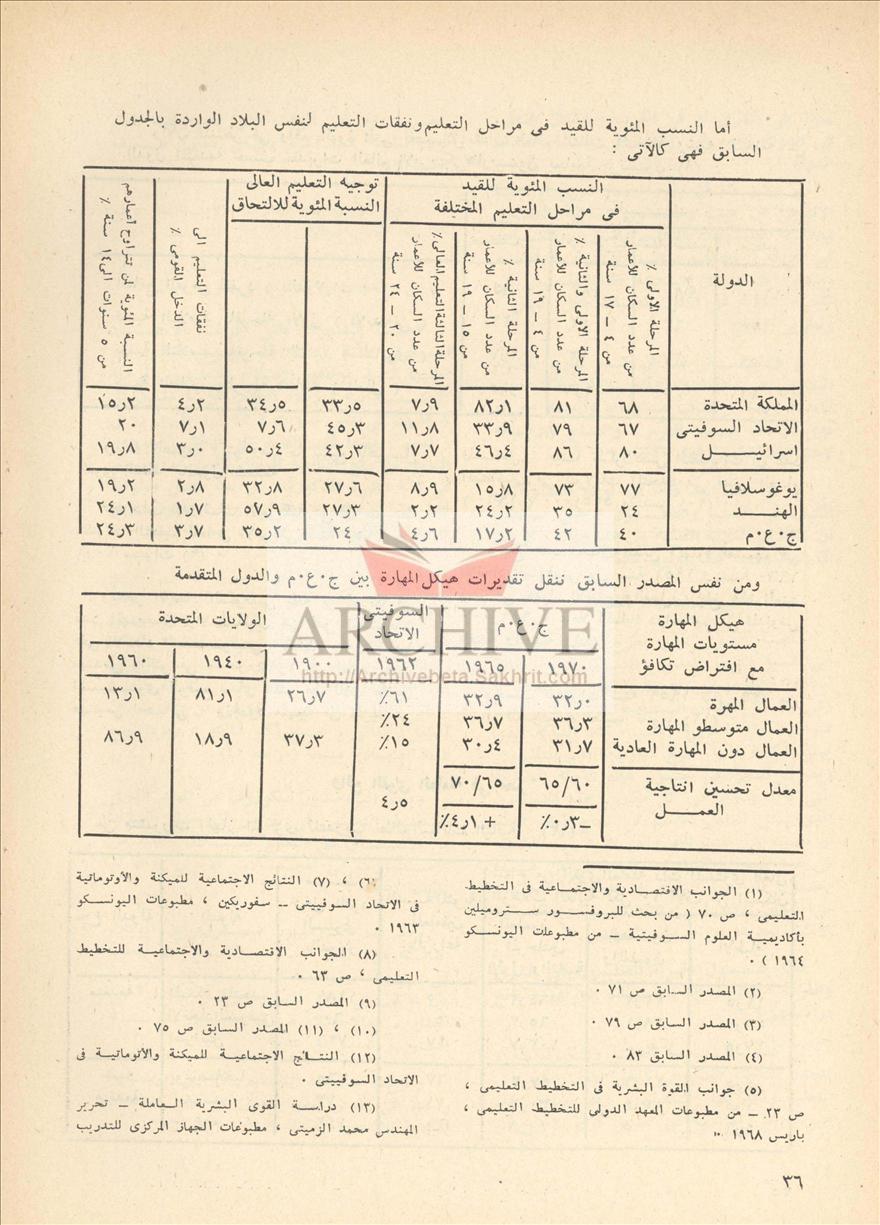 أما النسب المئوية للقيد فى مراحل التعليم ونفقات التعليم لنفس البلاد الواردة بالجدول
السابق فهى كالآتى :
الدولة
النسب المئوية للقيد
فى مراحل التعليم المختلفة
توجيه التعليم العالى
النسبة المئوية للالتحاق
المرحلة الاولى ٪
من عدد السكان للأعمار
من ٤ – ١٧ سنة
المرحلة الاولى والثانية ٪
من عدد السكان للأعمار
من ٤ – ١٩ سنة
المرحلة الثانية ٪
من عدد السكان للأعمار
من ١٥ – ١٩ سنة
المرحلة الثالثة التعليم العالى ٪
من عدد السكان للأعمار
من ٢٠ – ٢٤ سنة
نفقات التعليم الى
الدخل القومى ٪
النسبة المئوية لمن تتراوح أعمارهم
من ٥ سنوات الى ١٤ سنة ٪
المملكة المتحدة ٦٨ ٨١ ٨٢ر١ ٧ر٩ ٣٣ر٥ ٣٤ر٥ ٤ر٢ ١٥ر٢
الاتحاد السوفيتى ٦٧ ٧٩ ٣٣ر٩ ١١ر٨ ٤٥ر٣ ٧ر٦ ٧ر١ ٢٠
اسرائيل ٨٠ ٨٦ ٤٦ر٤ ٧ر٧ ٤٢ر٣ ٥٠ر٤ ٣ر٠ ١٩ر٨
يوغوسلافيا ٧٧ ٧٣ ١٥ر٨ ٨ر٩ ٢٧ر٦ ٣٢ر٨ ٢ر٨ ١٩ر٢
الهند ٢٤ ٣٥ ٢٤ر٢ ٢ر٢ ٢٧ر٣ ٥٧ر٩ ١ر٧ ٢٤ر١
ج٠ع٠م ٤٠ ٤٢ ١٧ر٢ ٤ر٦ ٢٤ ٣٥ر٢ ٣ر٧ ٢٤ر٣
ومن نفس المصدر السابق ننقل تقديرات هيكل المهارة بين ج٠ع٠م والدول المتقدمة
هيكل المهارة
مستويات المهارة
مع افتراض تكافؤ
ج٠ع٠م
السوفيتى
الاتحاد
الولايات المتحدة
١٩٧٠ ١٩٦٥ ١٩٦٢ ١٩٠٠ ١٩٤٠ ١٩٦٠
العمال المهرة ٣٢ر٠ ٣٢ر٩ ٦١٪ ٢٦ر٧ ٨١ر١ ١٣ر١
العمال متوسطو المهارة ٣٦ر٣ ٣٦ر٧ ٢٤٪
العمال دون المهارة العادية ٣١ر٧ ٣٠ر٤ ١٥٪ ٣٧ر٣ ١٨ر٩ ٨٦ر٩
معدل تحسين انتاجية
العمل
٦٥/٦٠ ٧٠/٦٥
٥ر٤
–٠ر٣٪ + ١ر٤٪
ARCHIVE
http://Archivebeta.Sakhrit.com
(١) الجوانب الاقتصادية والاجتماعية فى التخطيط
التعليمى ، ص ٧٠ ( من بحث للبروفسور ستروميلين
بأكاديمية العلوم السوفيتية – من مطبوعات اليونسكو
١٩٦٤ ) ٠
(٢) المصدر السابق ص ٧١ ٠
(٣) المصدر السابق ص ٧٩ ٠
(٤) المصدر السابق ٨٣ ٠
(٥) جوانب القوة البشرية فى التخطيط التعليمى ،
ص ٢٣ – من مطبوعات المعهد الدولى للتخطيط التعليمى ،
باريس ١٩٦٨ ٠٠
(٦) ، (٧) النتائج الاجتماعية للميكنة والأوتوماتية
فى الاتحاد السوفييتى -- سفوريكين ، مطبوعات اليونسكو
١٩٦٣ ٠
(٨) الجوانب الاقتصادية والاجتماعية للتخطيط
التعليمى ، ص ٦٣ ٠
(٩) المصدر السابق ص ٢٣ ٠
(١٠) ، (١١) المصدر السابق ص ٧٥ ٠
(١٢) النتائج الاجتماعية للميكنة والأتوماتية فى
الاتحاد السوفييتى ٠
(١٣) دراسة القوى البشرية العاملة – تحرير
المهندس محمد الزميتى ، مطبوعات الجهاز المركزى للتدريب
٣٦